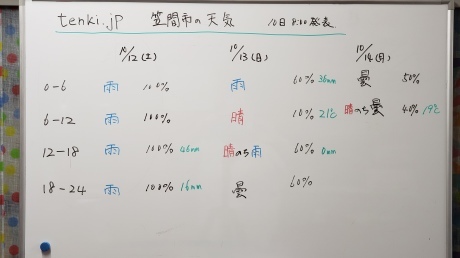 tenki.jp 笠間市の天気 10日 8:00 発表
10/12(土) 10/13(日) 10/14(月)
0-6 雨 100% 雨 60% 36mm 曇 50%
6-12 雨 100% 晴 10% 21℃ 晴のち曇 40% 19℃
12-18 雨 100% 46mm 晴のち雨 60% 0mm
18-24 雨 100% 16mm 曇 60%